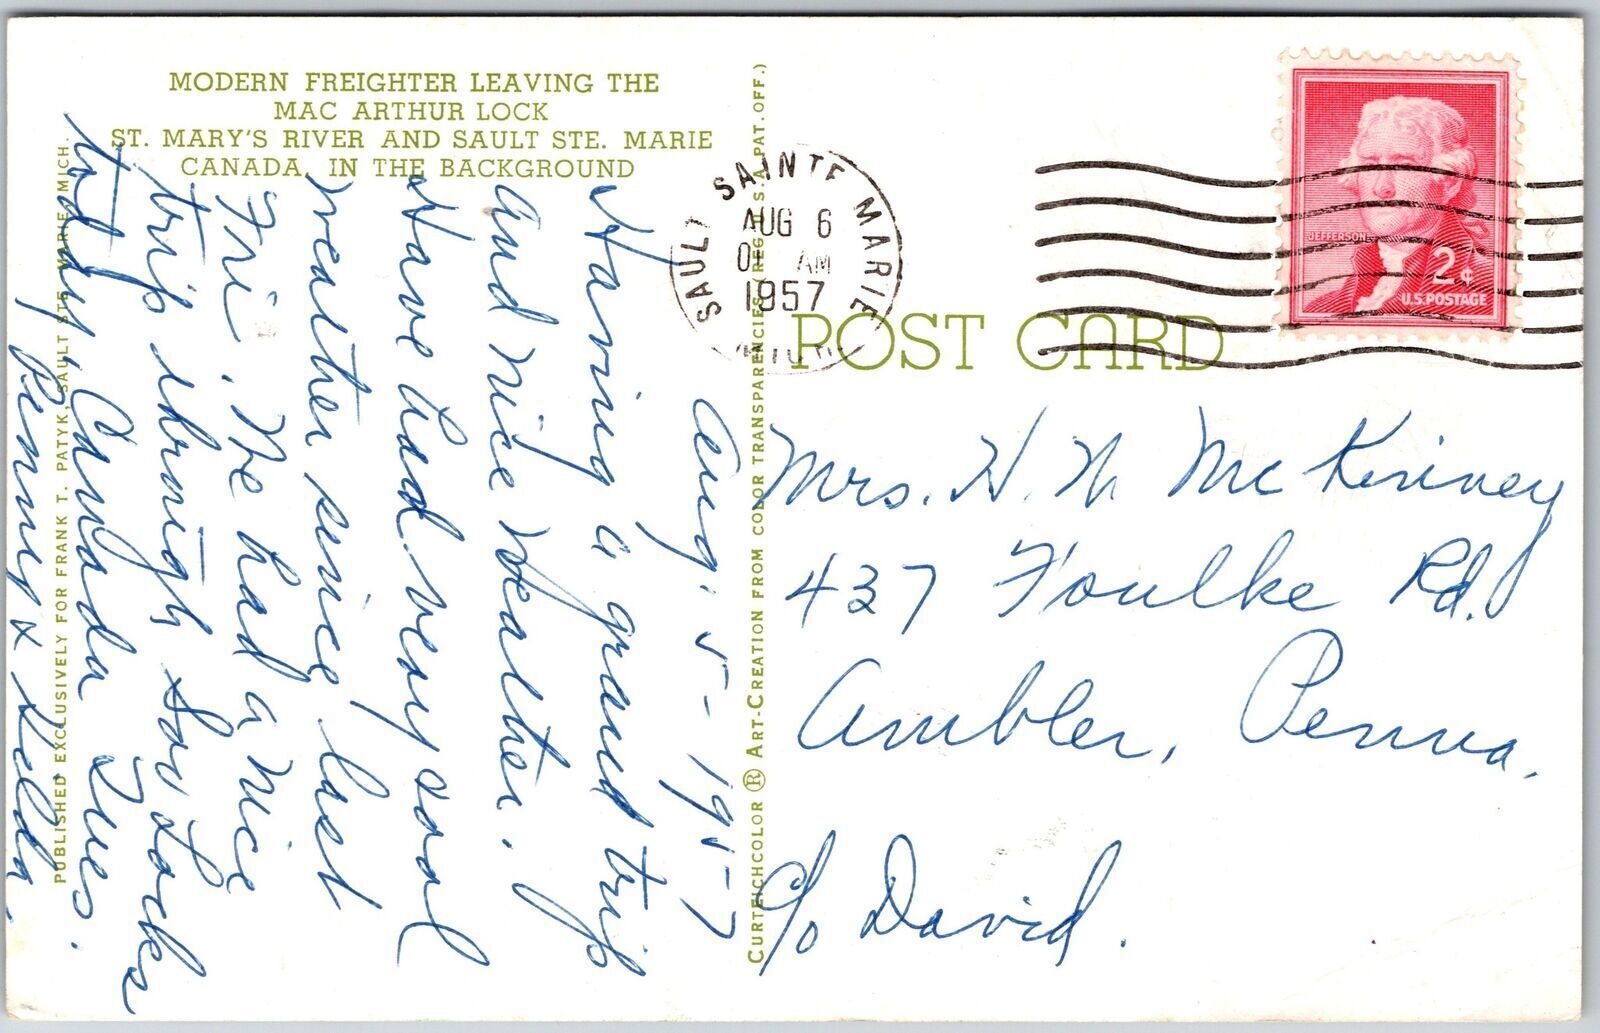 MODERN FREIGHTER LEAVING THE
MAC ARTHUR LOCK
ST. MARY'S RIVER AND SAULT STE. MARIE
CANADA, IN THE BACKGROUND
PUBLISHED EXCLUSIVELY FOR FRANK T. PATYK, SAULT STE. MARIE, MICH.
Aug. 5-1957
Having a grand trip
and nice weather.
Have had very cool
weather since last
Fri. We had a nice
trip through Soo Locks
today, Canada Tues.
Benny x Zelda.
CURTEICHCOLOR ® ART-CREATION FROM COLOR TRANSPARENCIES (REG. U.S.A. PAT. OFF.)
SAULT SAINTE MARIE
AUG 6
AM
1957
JEFFERSON
2¢
U.S. POSTAGE
POST CARD
Mrs. H. N McKinney
437 Foulke Rd.
Ambler, Penna.
c/o David.